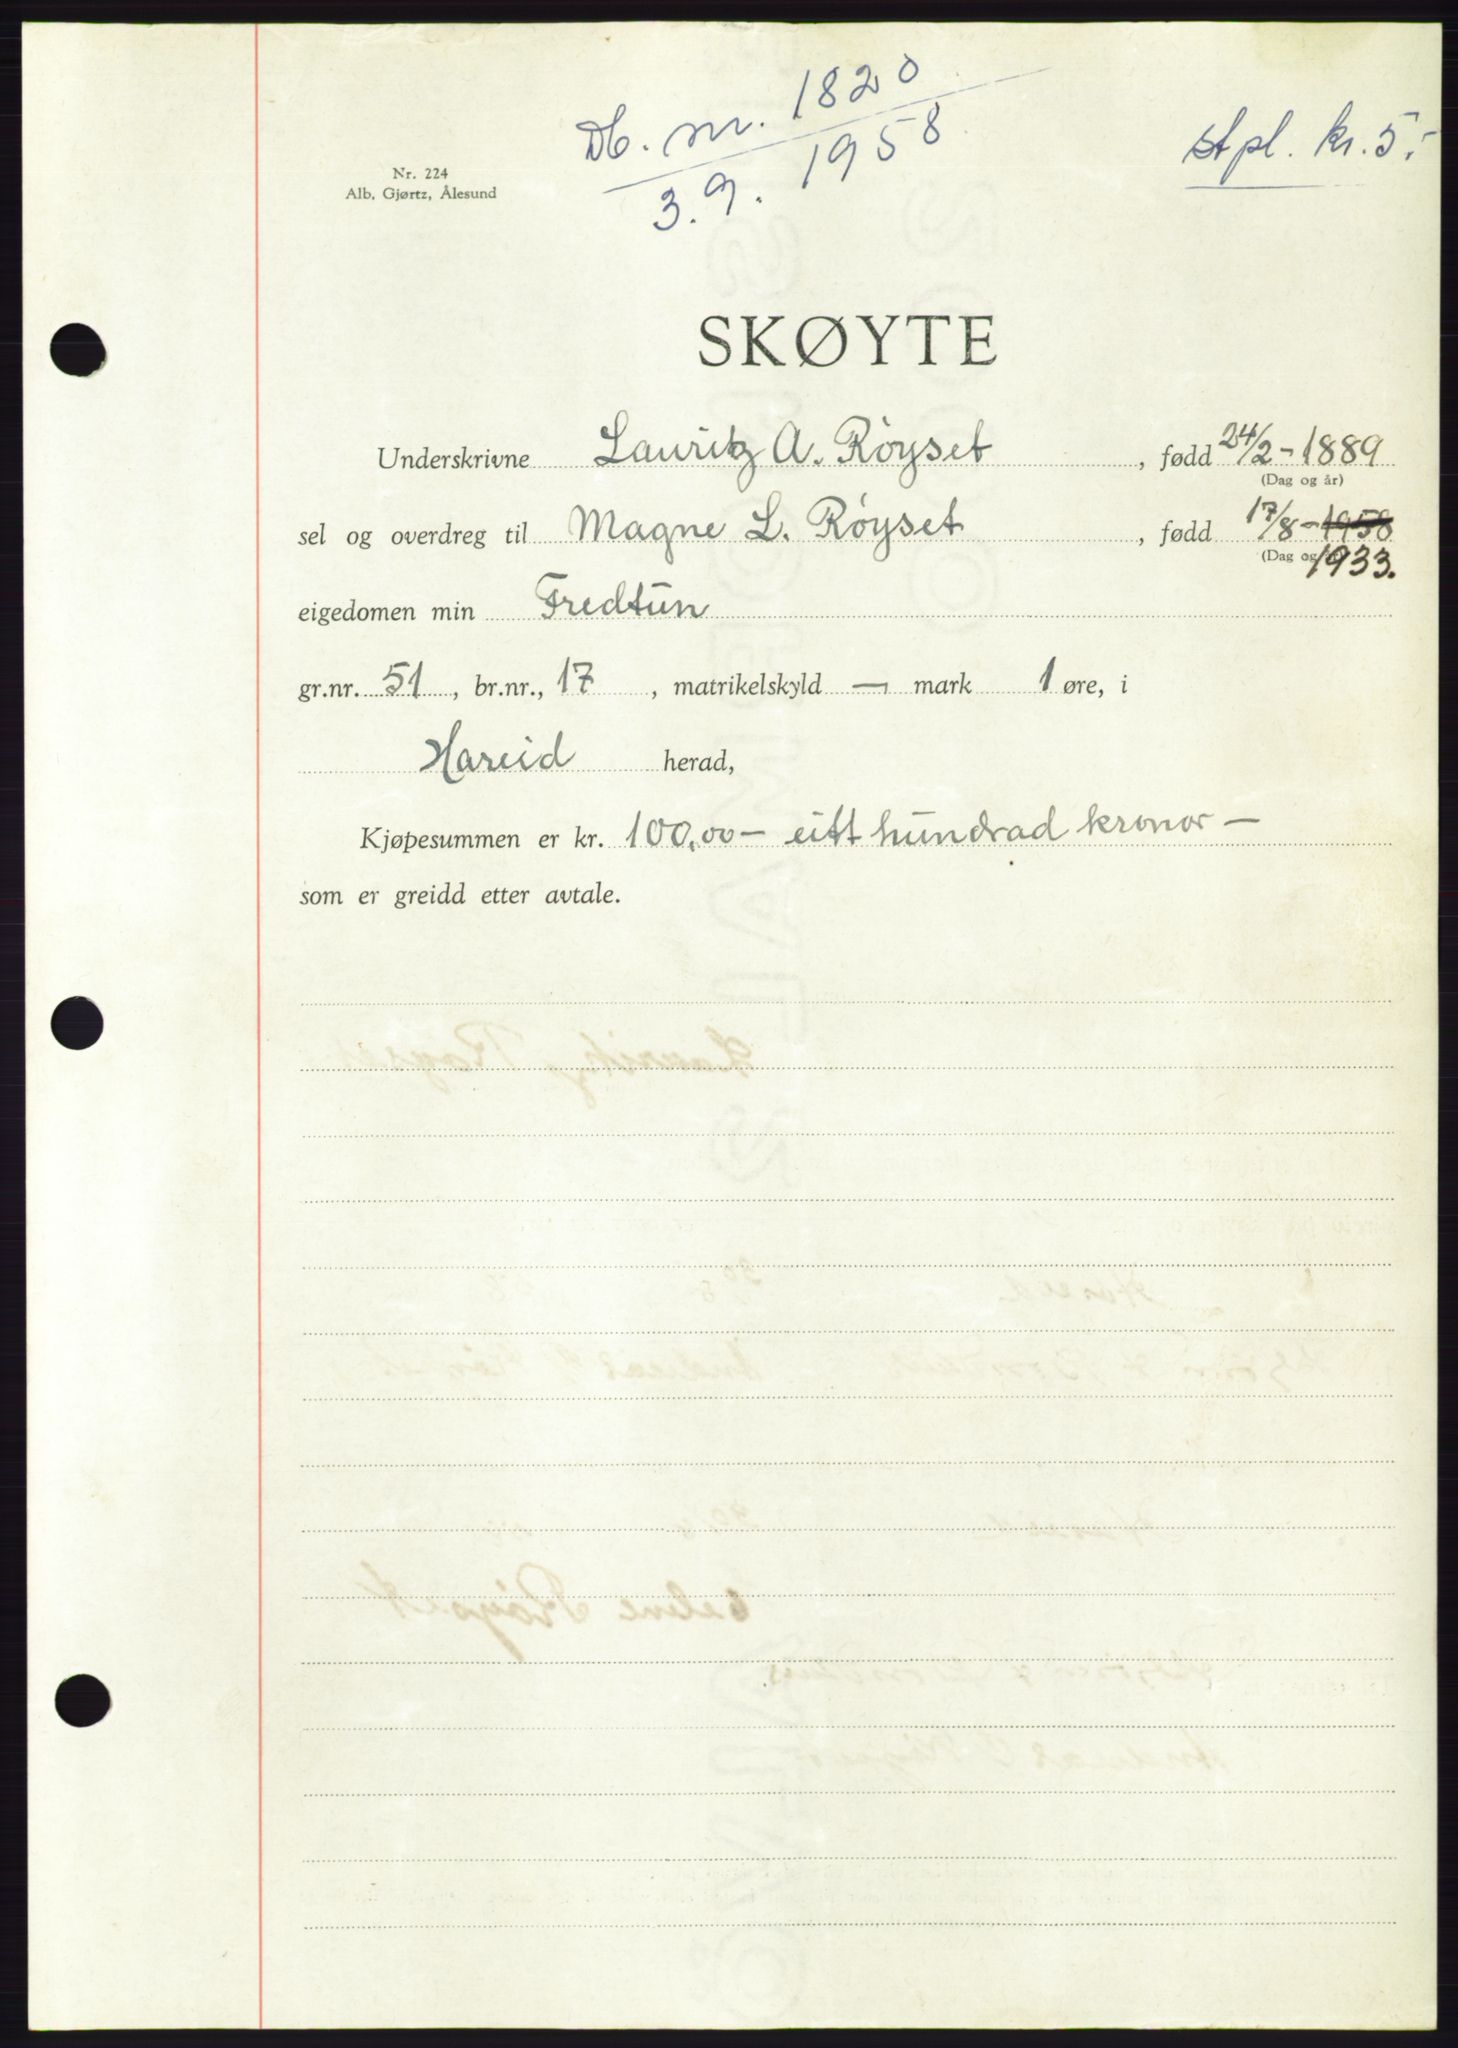 Db. nr. 1820
3.9. 1958
stpl. kr. 5.-
Nr. 224
Alb. Gjørtz, Ålesund
SKØYTE
Underskrivne Lauritz A. Röyset, fødd 24/2-1889
(Dag og år)
sel og overdreg til Magne L. Röyset, fødd 17/8-1958
(Dag og år) 1933.
eigedomen min Fredtun
gr.nr. 51, br.nr., 17, matrikelskyld — mark 1 øre, i
Hareid herad,
Kjøpesummen er kr. 100,00 — eitt hundrad kronor —
som er greidd etter avtale.